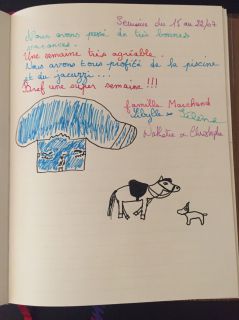 Semaine du 15 au 22/07
Nous avons passé de très bonnes
vacances.
Une semaine très agréable.
Nous avons tous profité de la piscine
et du jacuzzi....
Bref une super semaine!!!
famille Marchand
Sibylle Hélène
Nathalie Christophe